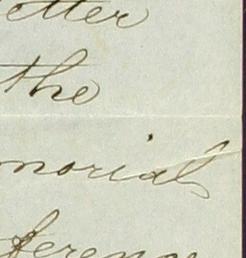 etter
the
morial
ference